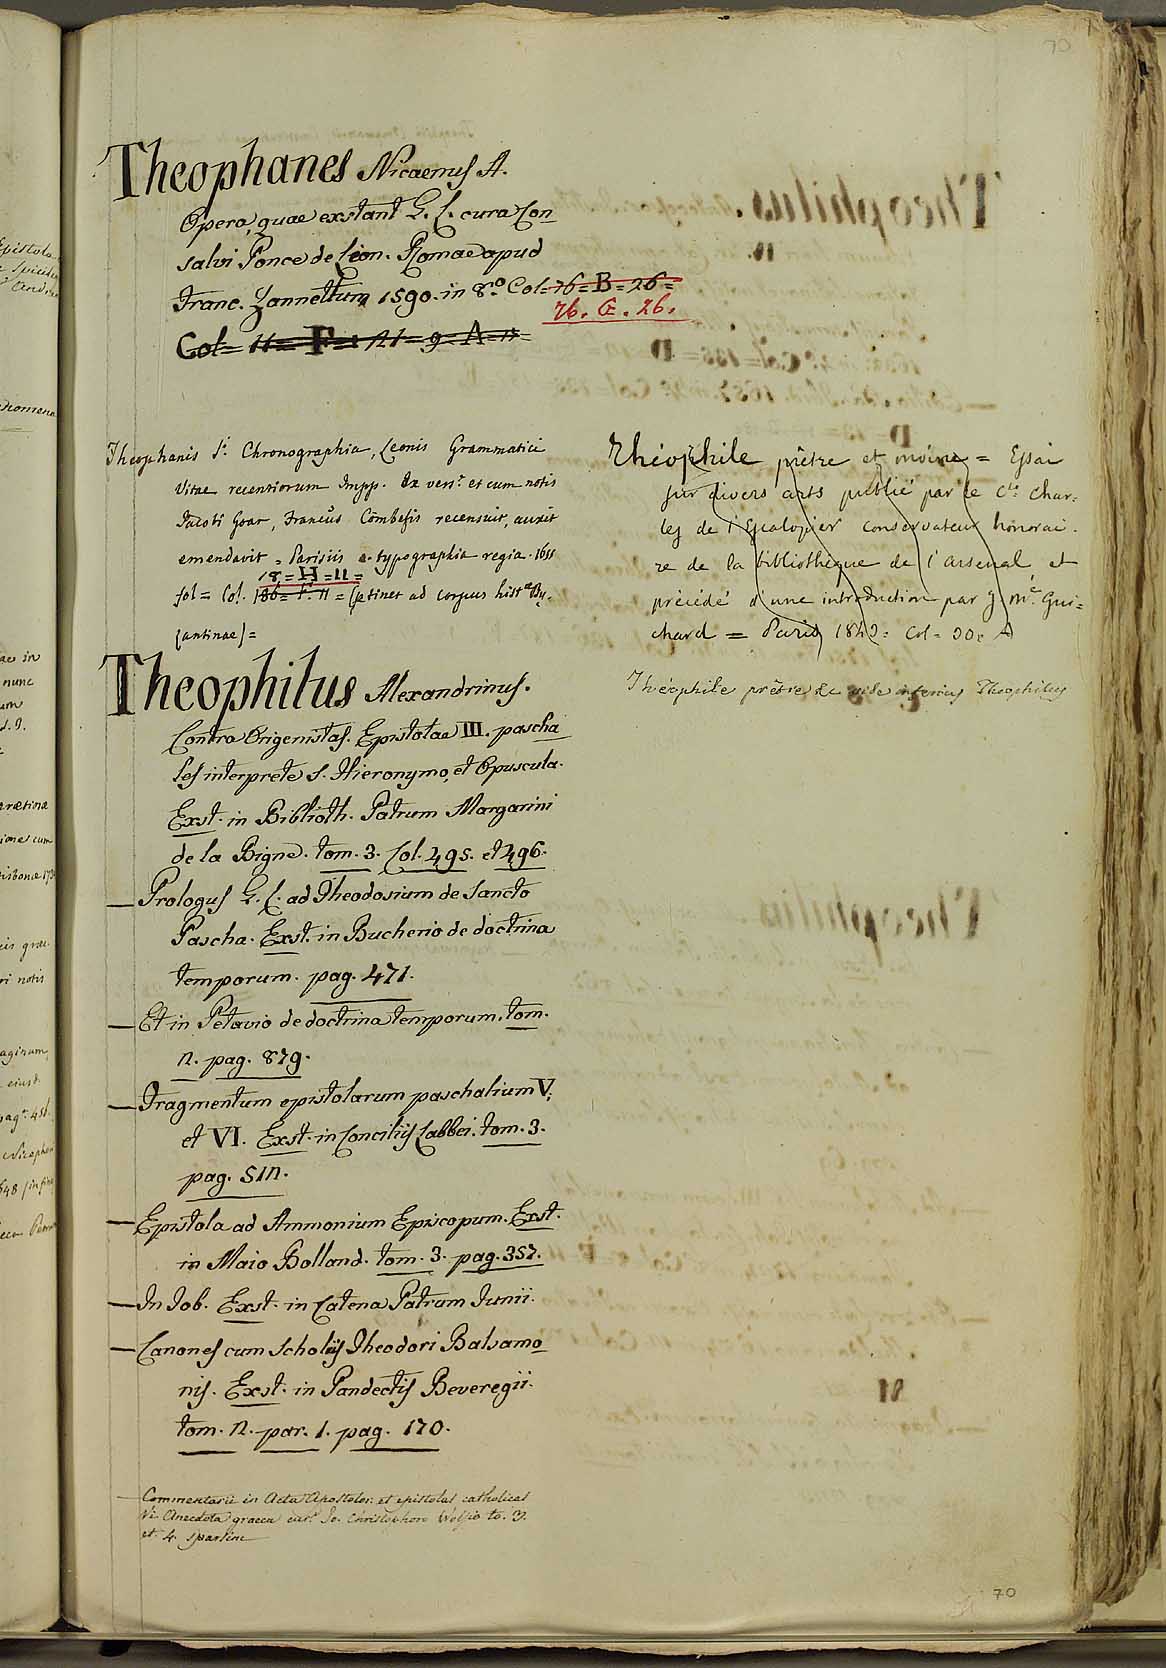 70
Theophanes Nicaenus A.
Opera, quae exstant G. L. cura Con
salvi Ponce de Leon. Romae apud
Franc. Zannettum 1590. in 8.o Col= 26= B= 26=
26. G. 26.
Col= 11= F= 121= 9= A= 11=
Theophanis S.i Chronographia, Leonis Grammatici
Vitae recentiorum Impp. Ex vers.e et cum notis
Jacobi Goar, Francus Combefis recensuit, auxit
emendavit = Parisiis e typographia regia. 1655
18 = H = 11 =
fol = Col. 186= F. 11 = (ptinet ad corpus hist.ae By,
zantinae) =
Theophilus Alexandrinus.
Contra Origenistas. Epistolae III. pascha
les interprete S. Hieronymo, et Opuscula.
Exst. in Biblioth. Patrum Margarini
de la Bigne. tom. 3. Col. 495. et 496.
— Prologus G. L. ad Theodosium de Sancto
Pascha. Exst. in Bucherio de doctrina
temporum. pag. 471.
— Et in Petavio de doctrina temporum. tom.
2. pag. 879.
— Fragmentum epistolarum paschalium V,
et VI. Exst. in Conciliis Labbei. tom. 3.
pag. 512.
— Epistola ad Ammonium Episcopum. Exst.
in Maio Bolland. tom. 3. pag. 357.
— In Iob. Exst. in Catena Patrum Junii.
— Canones cum Scholiis Theodori Balsamo
nis. Exst. in Pandectis Beveregii.
tom. 2. par. 1. pag. 170.
— Commentarii in Acta Apostolor. et epistolas catholicas
Vi. Anecdota graeca cur.e Jo. Christophoro Wolfio to. 3.
et 4. sparsim
Théophile prêtre et moine = Essai
sur divers arts publié par le C.te Char=
les de l'Escalopier conservateur honorai.
re de la bibliothèque de l'arsenal et
précédé d'une introduction par J. M.e Gui=
chard = Paris 1843= Col= 90= A
Théophile prêtre &c vide inferius Theophilus
70